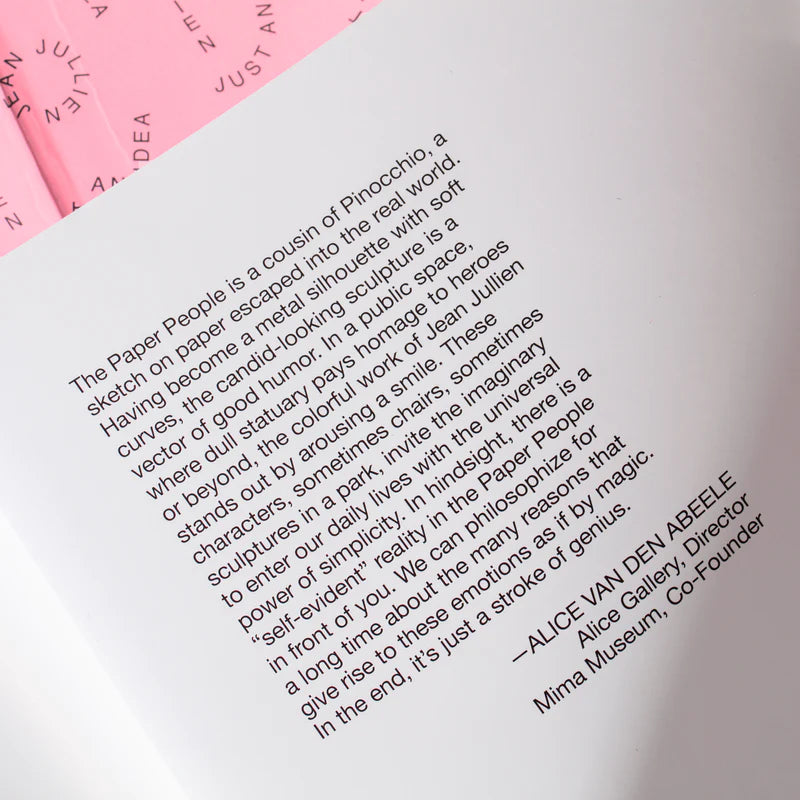 JEAN
JULLIEN
JUST AN
IDEA
AN
The Paper People is a cousin of Pinocchio, a
sketch on paper escaped into the real world.
Having become a metal silhouette with soft
curves, the candid-looking sculpture is a
vector of good humor. In a public space,
where dull statuary pays homage to heroes
or beyond, the colorful work of Jean Jullien
stands out by arousing a smile. These
characters, sometimes chairs, sometimes
sculptures in a park, invite the imaginary
to enter our daily lives with the universal
power of simplicity. In hindsight, there is a
“self-evident” reality in the Paper People
in front of you. We can philosophize for
a long time about the many reasons that
give rise to these emotions as if by magic.
In the end, it’s just a stroke of genius.
—ALICE VAN DEN ABEELE
Alice Gallery, Director
Mima Museum, Co-Founder